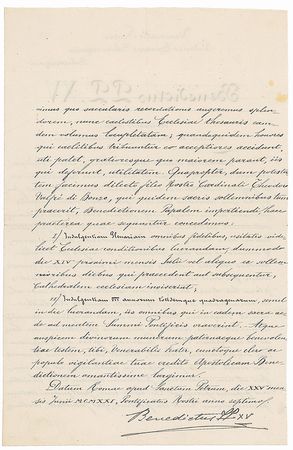 nimus quo saecularis recordationis augeremus splen-
dorem, nunc caelestibus Ecclesiae thesauris eam-
dem volumus locupletatam; quandoquidem honores
qui caelitibus tribuuntur eo acceptiores accidunt,
uti patet, gratioresque quo maiorem parant, iis
qui deferunt, utilitatem. Quapropter, dum potesta-
tem facimus dilecto filio Nostro Cardinali Theodoro
Valfrè di Bonzo, qui quidem sacris sollemnibus tam
praeerit, Benedictionem Papalem impertiendi, haec
praeterea quae sequuntur concedimus:
1) Indulgentiam Plenariam omnibus fidelibus, usitatis vide-
licet Ecclesiae conditionibus lucrandam, dummodo
die XIV proximi mensis Iulii vel aliquo ex solle-
mnioribus diebus qui praecedent aut subsequentur,
Cathedralem ecclesiam inviserint;
2) Indulgentiam annorum totidemque quadragenarum, semel
in die lucrandam, iis omnibus qui in eadem sacra ae-
de ad mentem Summi Pontificis oraverint. Atque
auspicem divinorum munerum paternaeque benevolen-
tiae testem, tibi, Venerabilis frater, cunctoque clero ac
populo vigilantiae tuae credito Apostolicam Bene-
dictionem amantissime largimur.
Datum Romae apud Sanctum Petrum, die XXV men-
sis Iunii MCMXXI, Pontificatus Nostri anno septimo.
Benedictus PP. XV